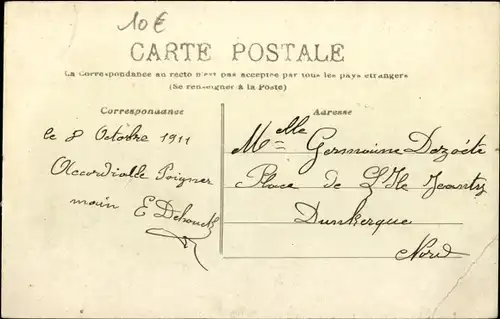 10€
CARTE POSTALE
La Correspondance au recto n'est pas acceptée par tous les pays étrangers
(Se renseigner à la Poste)
Correspondance
Adresse
le 8 Octobre 1911
Mlle Germaine
Place de L'Ile Jeanty
Poigner
main E Dehouck
Dunkerque
Nord